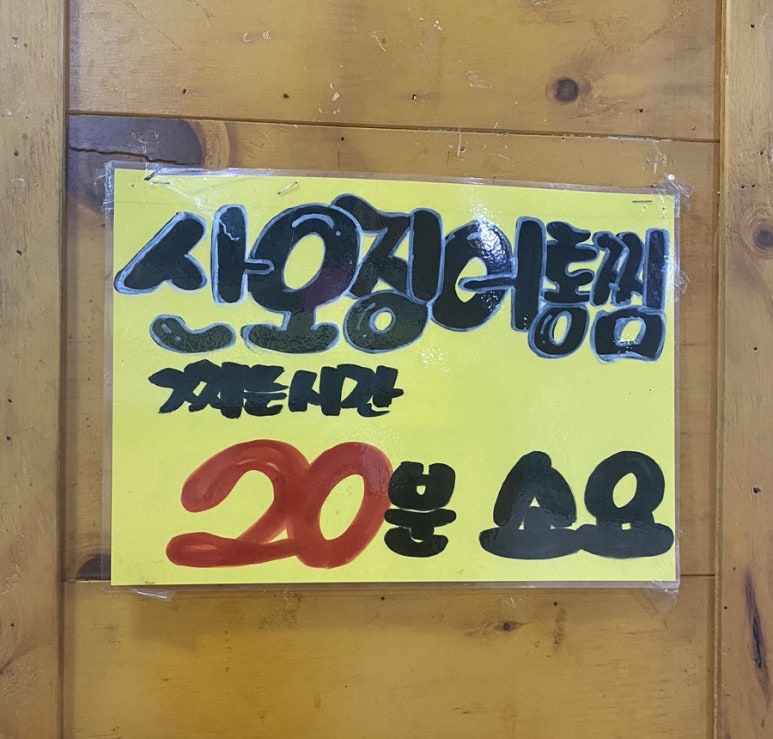 산오징어통찜
찌는시간
20분 소요